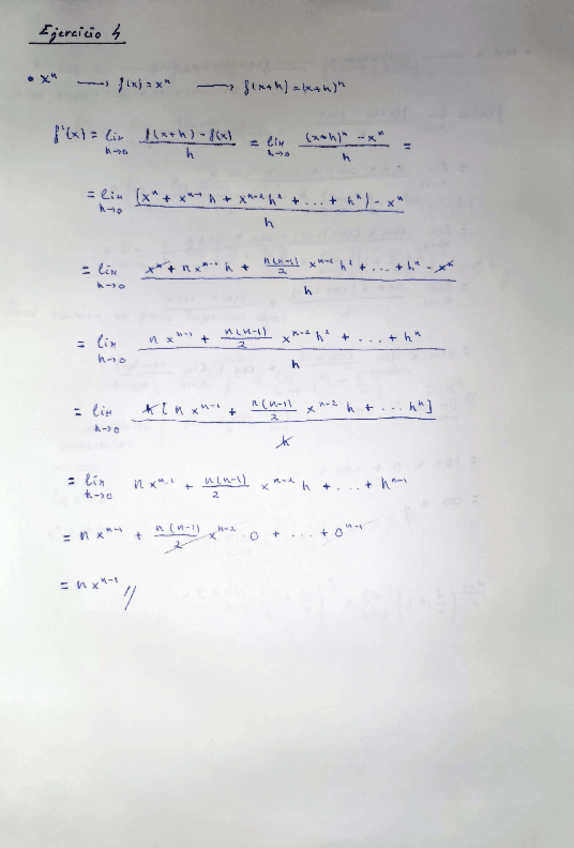 Ejercicio 4
• xⁿ → f(x) = xⁿ → f(x+h) = (x+h)ⁿ
f'(x) = lim h→0 (f(x+h) - f(x))/h = lim h→0 ((x+h)ⁿ - xⁿ)/h =
= lim h→0 ((xⁿ + xⁿ⁻¹ h + xⁿ⁻² h² + ... + hⁿ) - xⁿ)/h
= lim h→0 (xⁿ + n xⁿ⁻¹ h + n(n-1)/2 xⁿ⁻² h² + ... + hⁿ - xⁿ)/h
= lim h→0 (n xⁿ⁻¹ + n(n-1)/2 xⁿ⁻² h² + ... + hⁿ)/h
= lim h→0 h[n xⁿ⁻¹ + n(n-1)/2 xⁿ⁻² h + ... hⁿ]/h
= lim h→0 n xⁿ⁻¹ + n(n-1)/2 xⁿ⁻² h + ... + hⁿ⁻¹
= n xⁿ⁻¹ + n(n-1)/2 xⁿ⁻² · 0 + ... + 0ⁿ⁻¹
= n xⁿ⁻¹ //